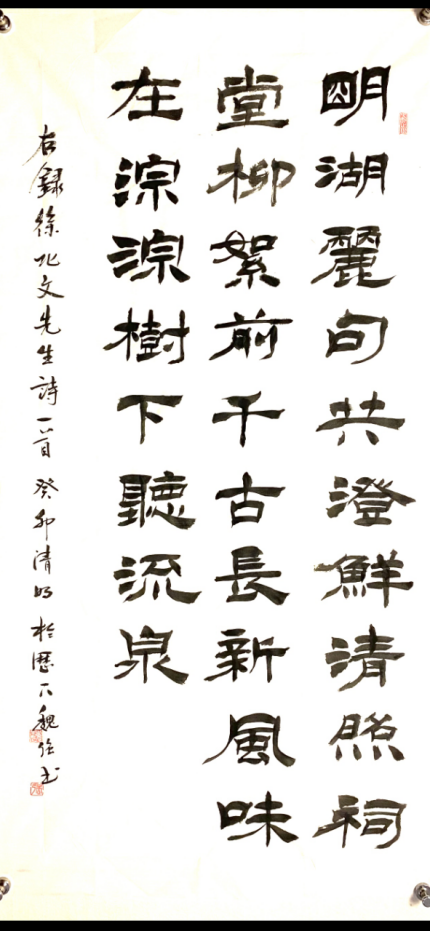 明湖麗句共澄鮮清照祠
堂柳絮前千古長新風味
在淙淙樹下聽流泉
右錄徐北文先生詩一首 癸卯清明於歷下魏 書